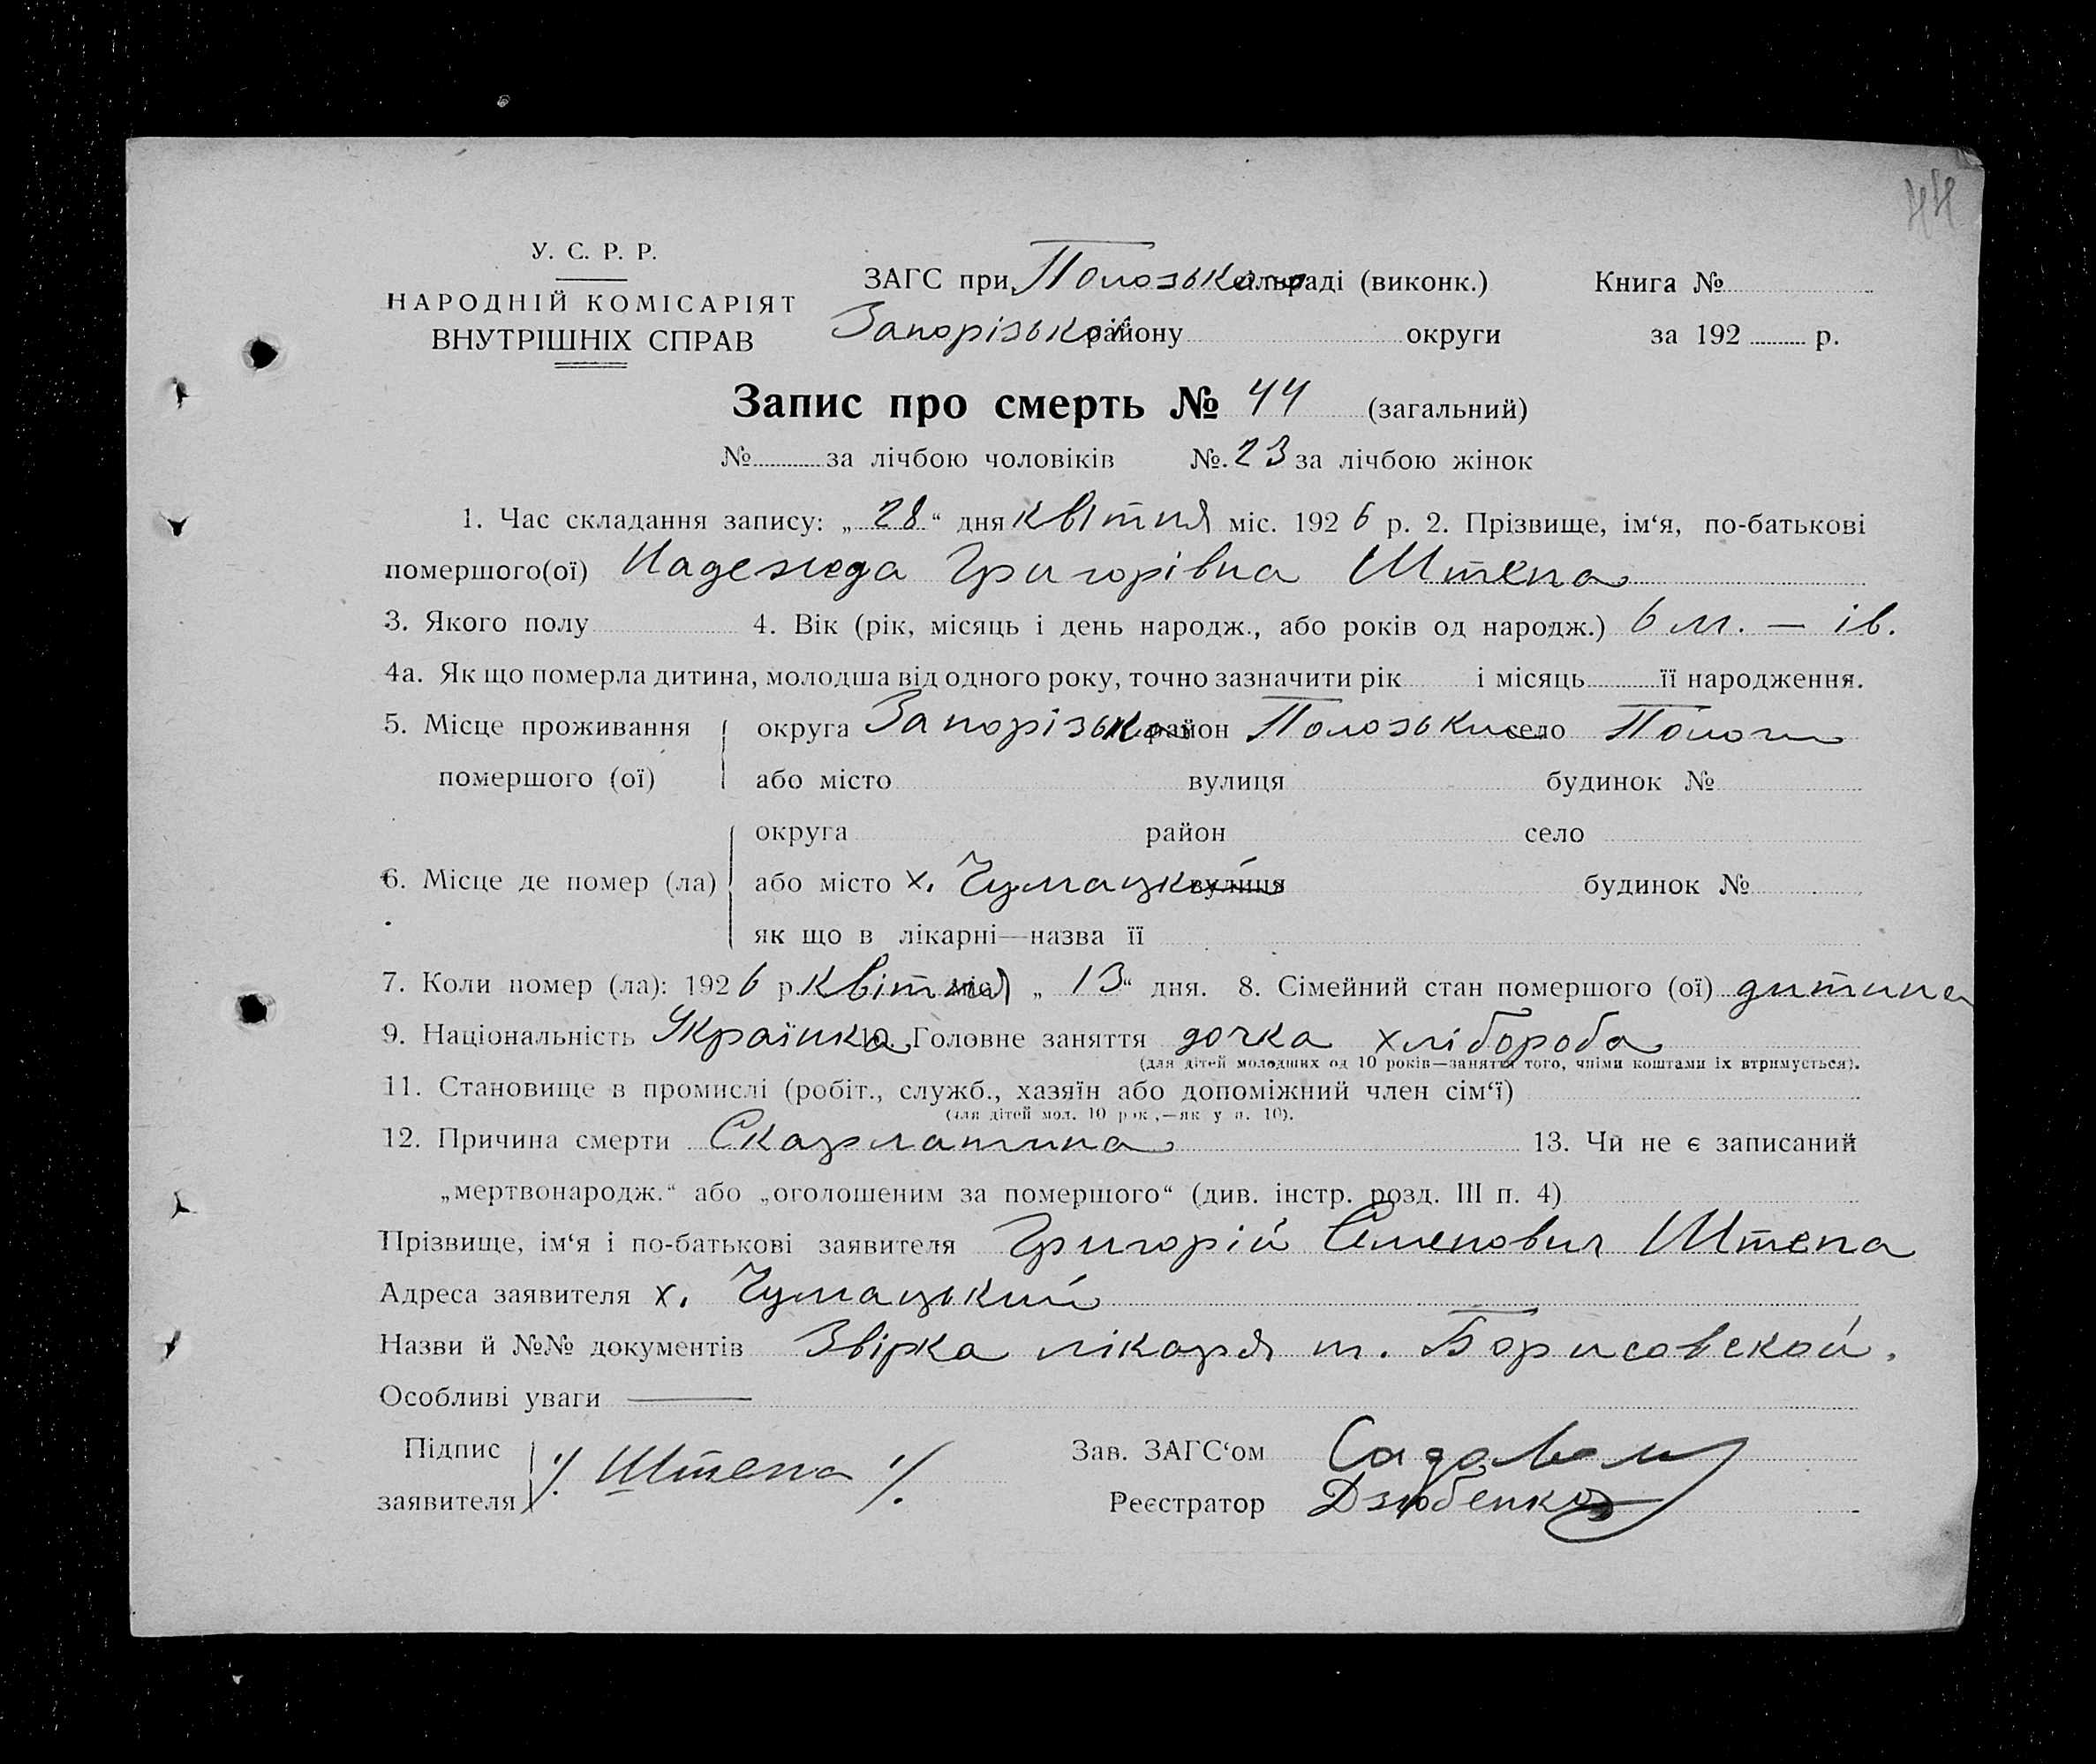 44
У. С. Р. Р.
НАРОДНІЙ КОМІСАРІЯТ
ВНУТРІШНІХ СПРАВ
ЗАГС при Полозькою сільраді (виконк.) Книга №
Запорізькой району округи за 192 р.
Запис про смерть № 44 (загальний)
№ за лічбою чоловіків №. 23 за лічбою жінок
1. Час складання запису: „ 28 “ дня квітня міс. 192 6 р. 2. Прізвище, ім‘я, по-батькові
помершого(ої) Надежда Григорівна Штепа
3. Якого полу 4. Вік (рік, місяць і день народж., або років од народж.) 6 м. — ів.
4а. Як що померла дитина, молодша від одного року, точно зазначити рік і місяць її народження.
5. Місце проживання округа Запорізькоі район Полозький село Пологи
помершого (ої) або місто вулиця будинок №
округа район село
6. Місце де помер (ла) або місто х. Чумацький вулиця будинок №
як що в лікарні—назва її
7. Коли помер (ла): 192 6 р. квітня міс. „ 13 “ дня. 8. Сімейний стан помершого (ої) дитина
9. Національність Українка 10. Головне заняття дочка хлібороба
(для дітей молодших од 10 років—заняття того, чиїми коштами їх втримується).
11. Становище в промислі (робіт., служб., хазяїн або допоміжний член сім‘ї)
(для дітей мол. 10 рок.,—як у п. 10).
12. Причина смерти Скарлатина 13. Чи не є записаний
„мертвонародж.“ або „оголошеним за помершого“ (див. інстр. розд. III п. 4)
Прізвище, ім‘я і по-батькові заявителя Григорій Семенович Штепа
Адреса заявителя х. Чумацький
Назви й №№ документів Звірка лікаря т. Борисовской.
Особливі уваги —
Підпис ./ Штепа ./. Зав. ЗАГС‘ом
заявителя Реєстратор Дзюбенко